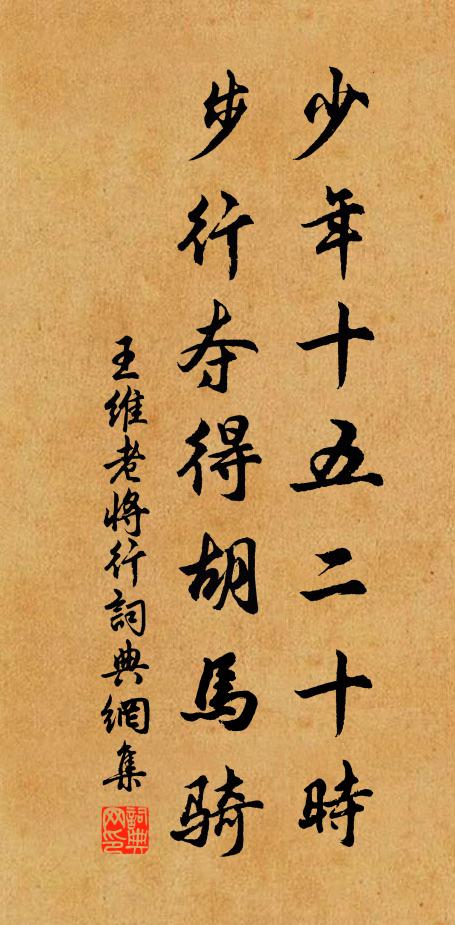 少年十五二十時
步行夺得胡馬騎
王維老将行詞典網集
詞典
网印